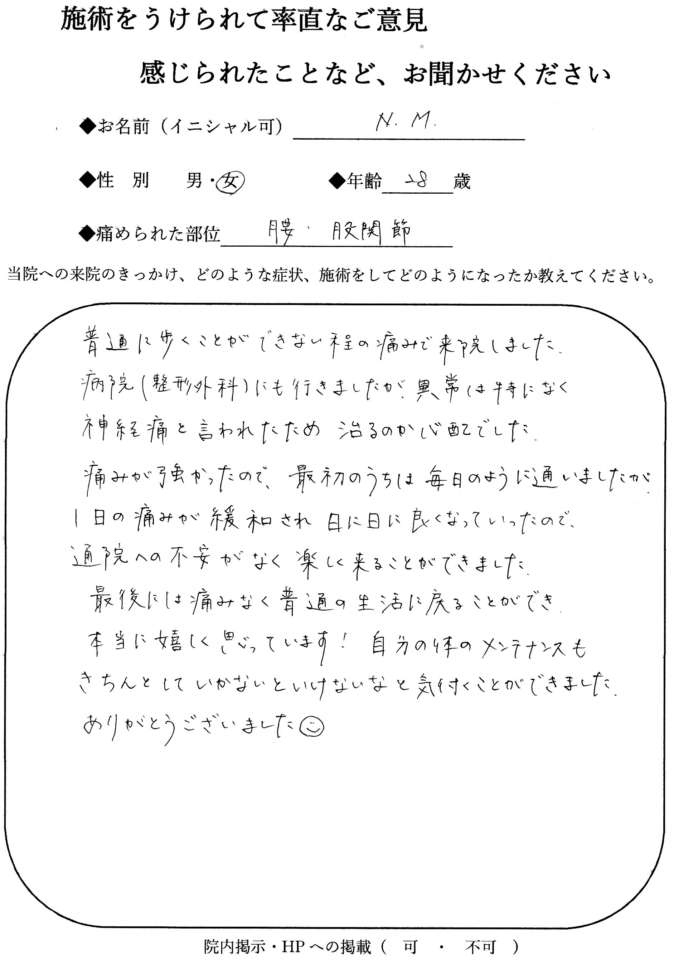 施術をうけられて率直なご意見
感じられたことなど、お聞かせください
◆お名前（イニシャル可） N. M.
◆性　別　　男・女　　◆年齢 28 歳
◆痛められた部位 腰・股関節
当院への来院のきっかけ、どのような症状、施術をしてどのようになったか教えてください。
普通に歩くことができない程の痛みで来院しました.
病院(整形外科)にも行きましたが、異常は特になく
神経痛と言われたため 治るのか心配でした.
痛みが強かったので、最初のうちは毎日のように通いましたが、
1日の痛みが緩和され 日に日に良くなっていったので、
通院への不安がなく 楽しく来ることができました.
最後には痛みなく普通の生活に戻ることができ.
本当に嬉しく思っています! 自分の体のメンテナンスも
きちんとしていかないといけないなと気付くことができました.
ありがとうございました☺
院内掲示・HP への掲載（　可　・　不可　）